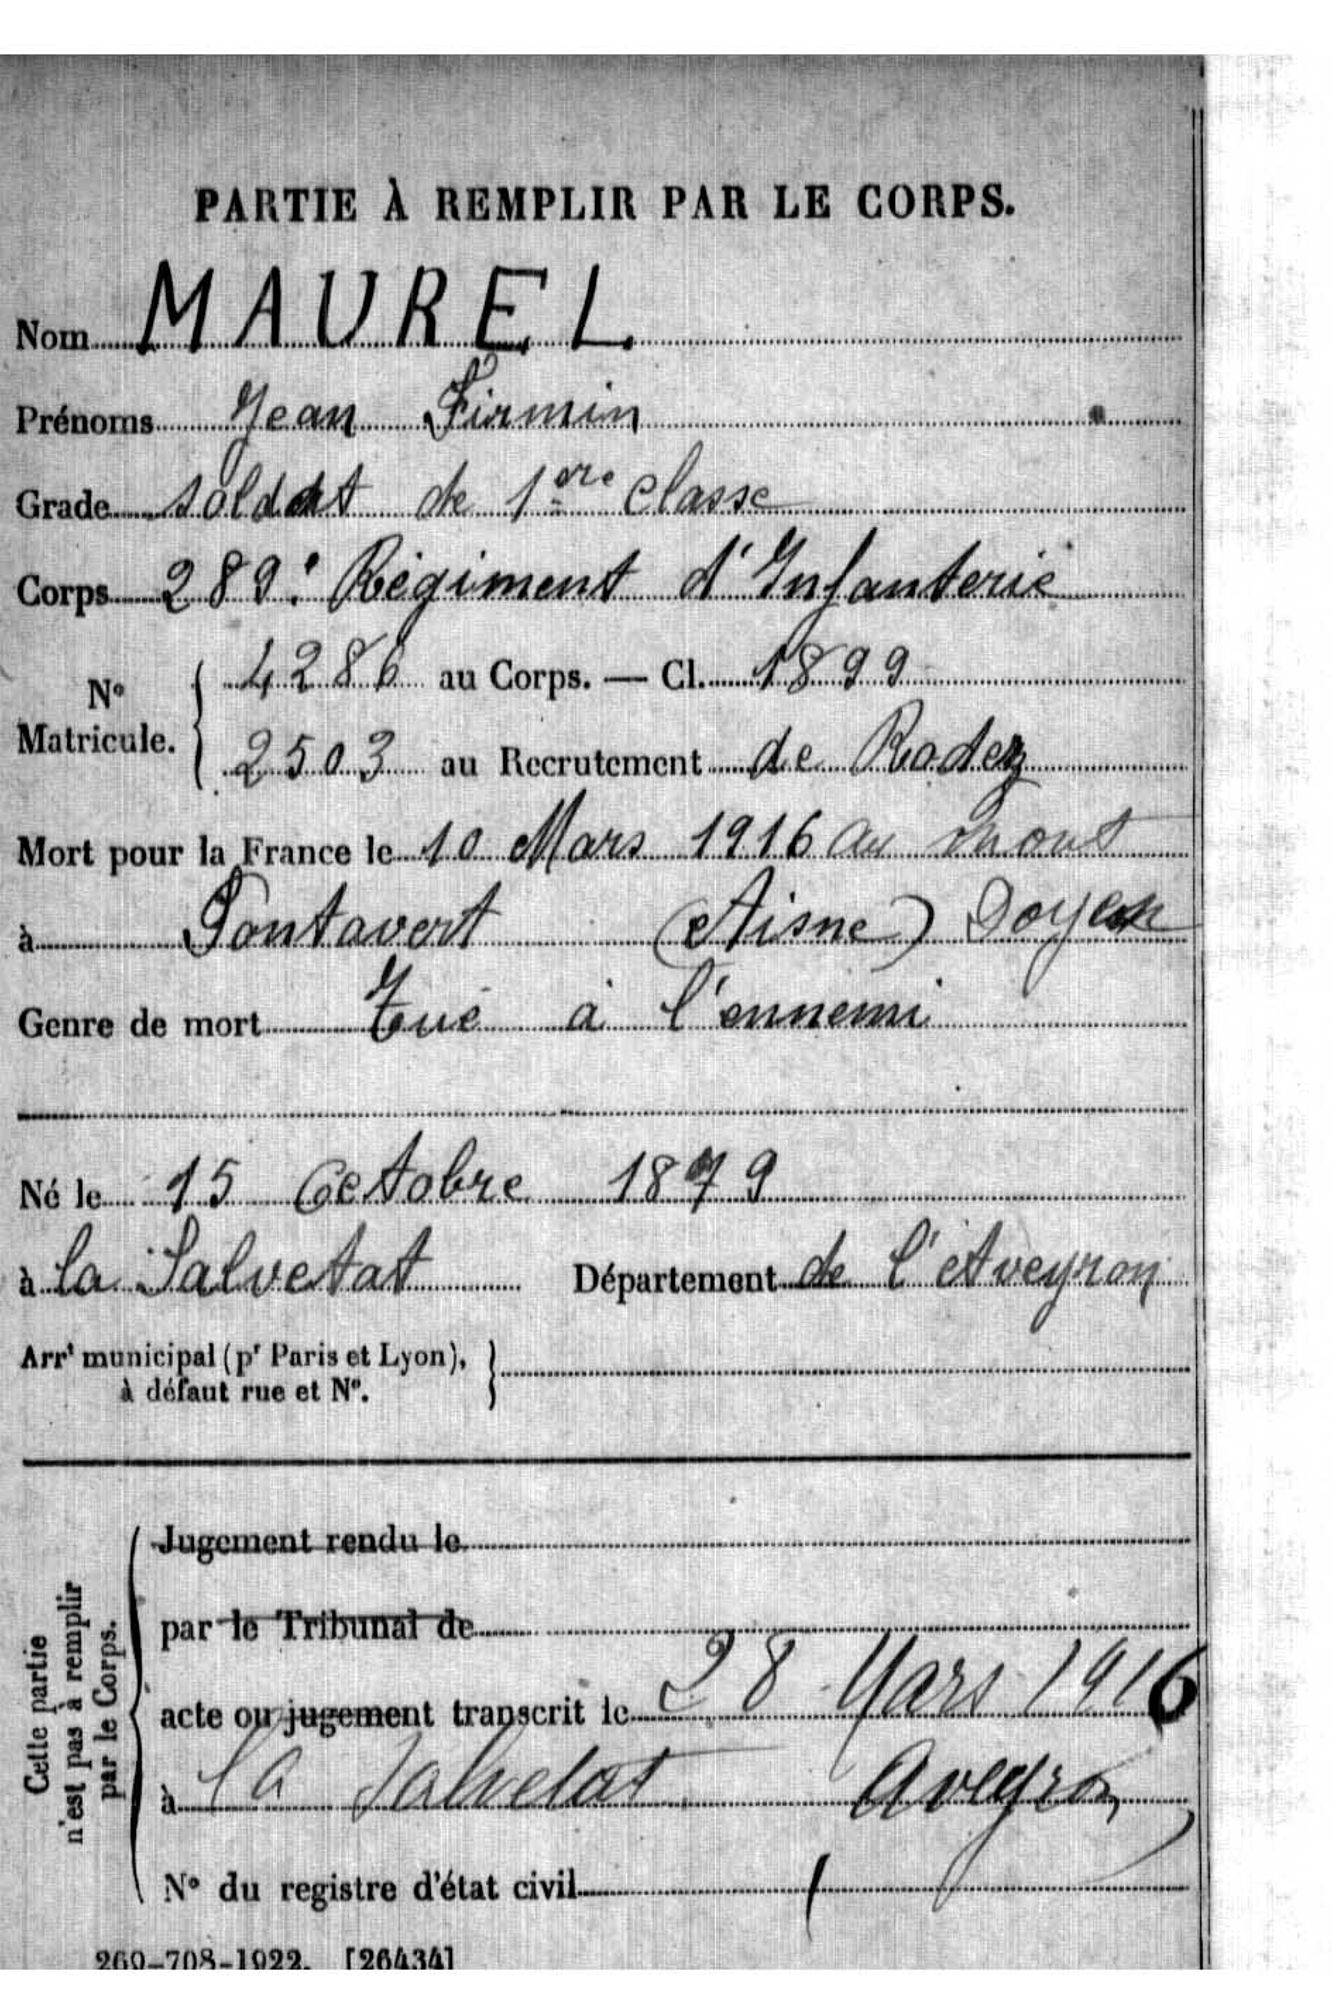 PARTIE À REMPLIR PAR LE CORPS.
Nom MAUREL
Prénoms Jean Firmin
Grade soldat de 1ère classe
Corps 289e Régiment d'Infanterie
N° Matricule. 4286 au Corps. — Cl. 1899
2503 au Recrutement de Rodez
Mort pour la France le 10 Mars 1916 au mont
à Pontavert (Aisne) Doyen
Genre de mort Tué à l'ennemi
Né le 15 Octobre 1879
à la Salvetat Département de l'Aveyron
Arrt municipal (pr Paris et Lyon),
à défaut rue et N°.
Cette partie
n'est pas à remplir
par le Corps.
Jugement rendu le
par le Tribunal de
acte ou jugement transcrit le 28 Mars 1916
à la Salvetat Aveyron
N° du registre d'état civil
269-708-1922. [26434]